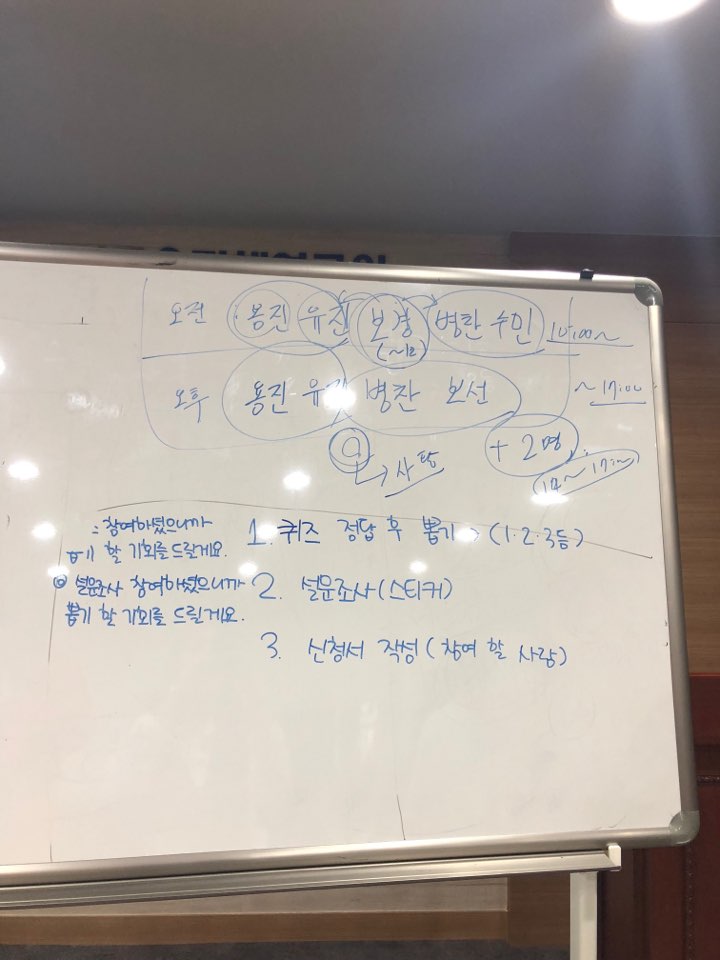 오전 용진 유진 보경 병찬 수민 10:00~
(~12)
오후 용진 유진 병찬 보선 ~17:00
→ 사탕
+ 2명
14~17:00
참여하셨으니까
뽑기 할 기회를 드릴게요.
◎ 설문조사 참여하셨으니까
뽑기 할 기회를 드릴게요.
1. 퀴즈 정답 후 뽑기 → (1·2·3등)
2. 설문조사(스티커)
3. 신청서 작성(참여 할 사람)